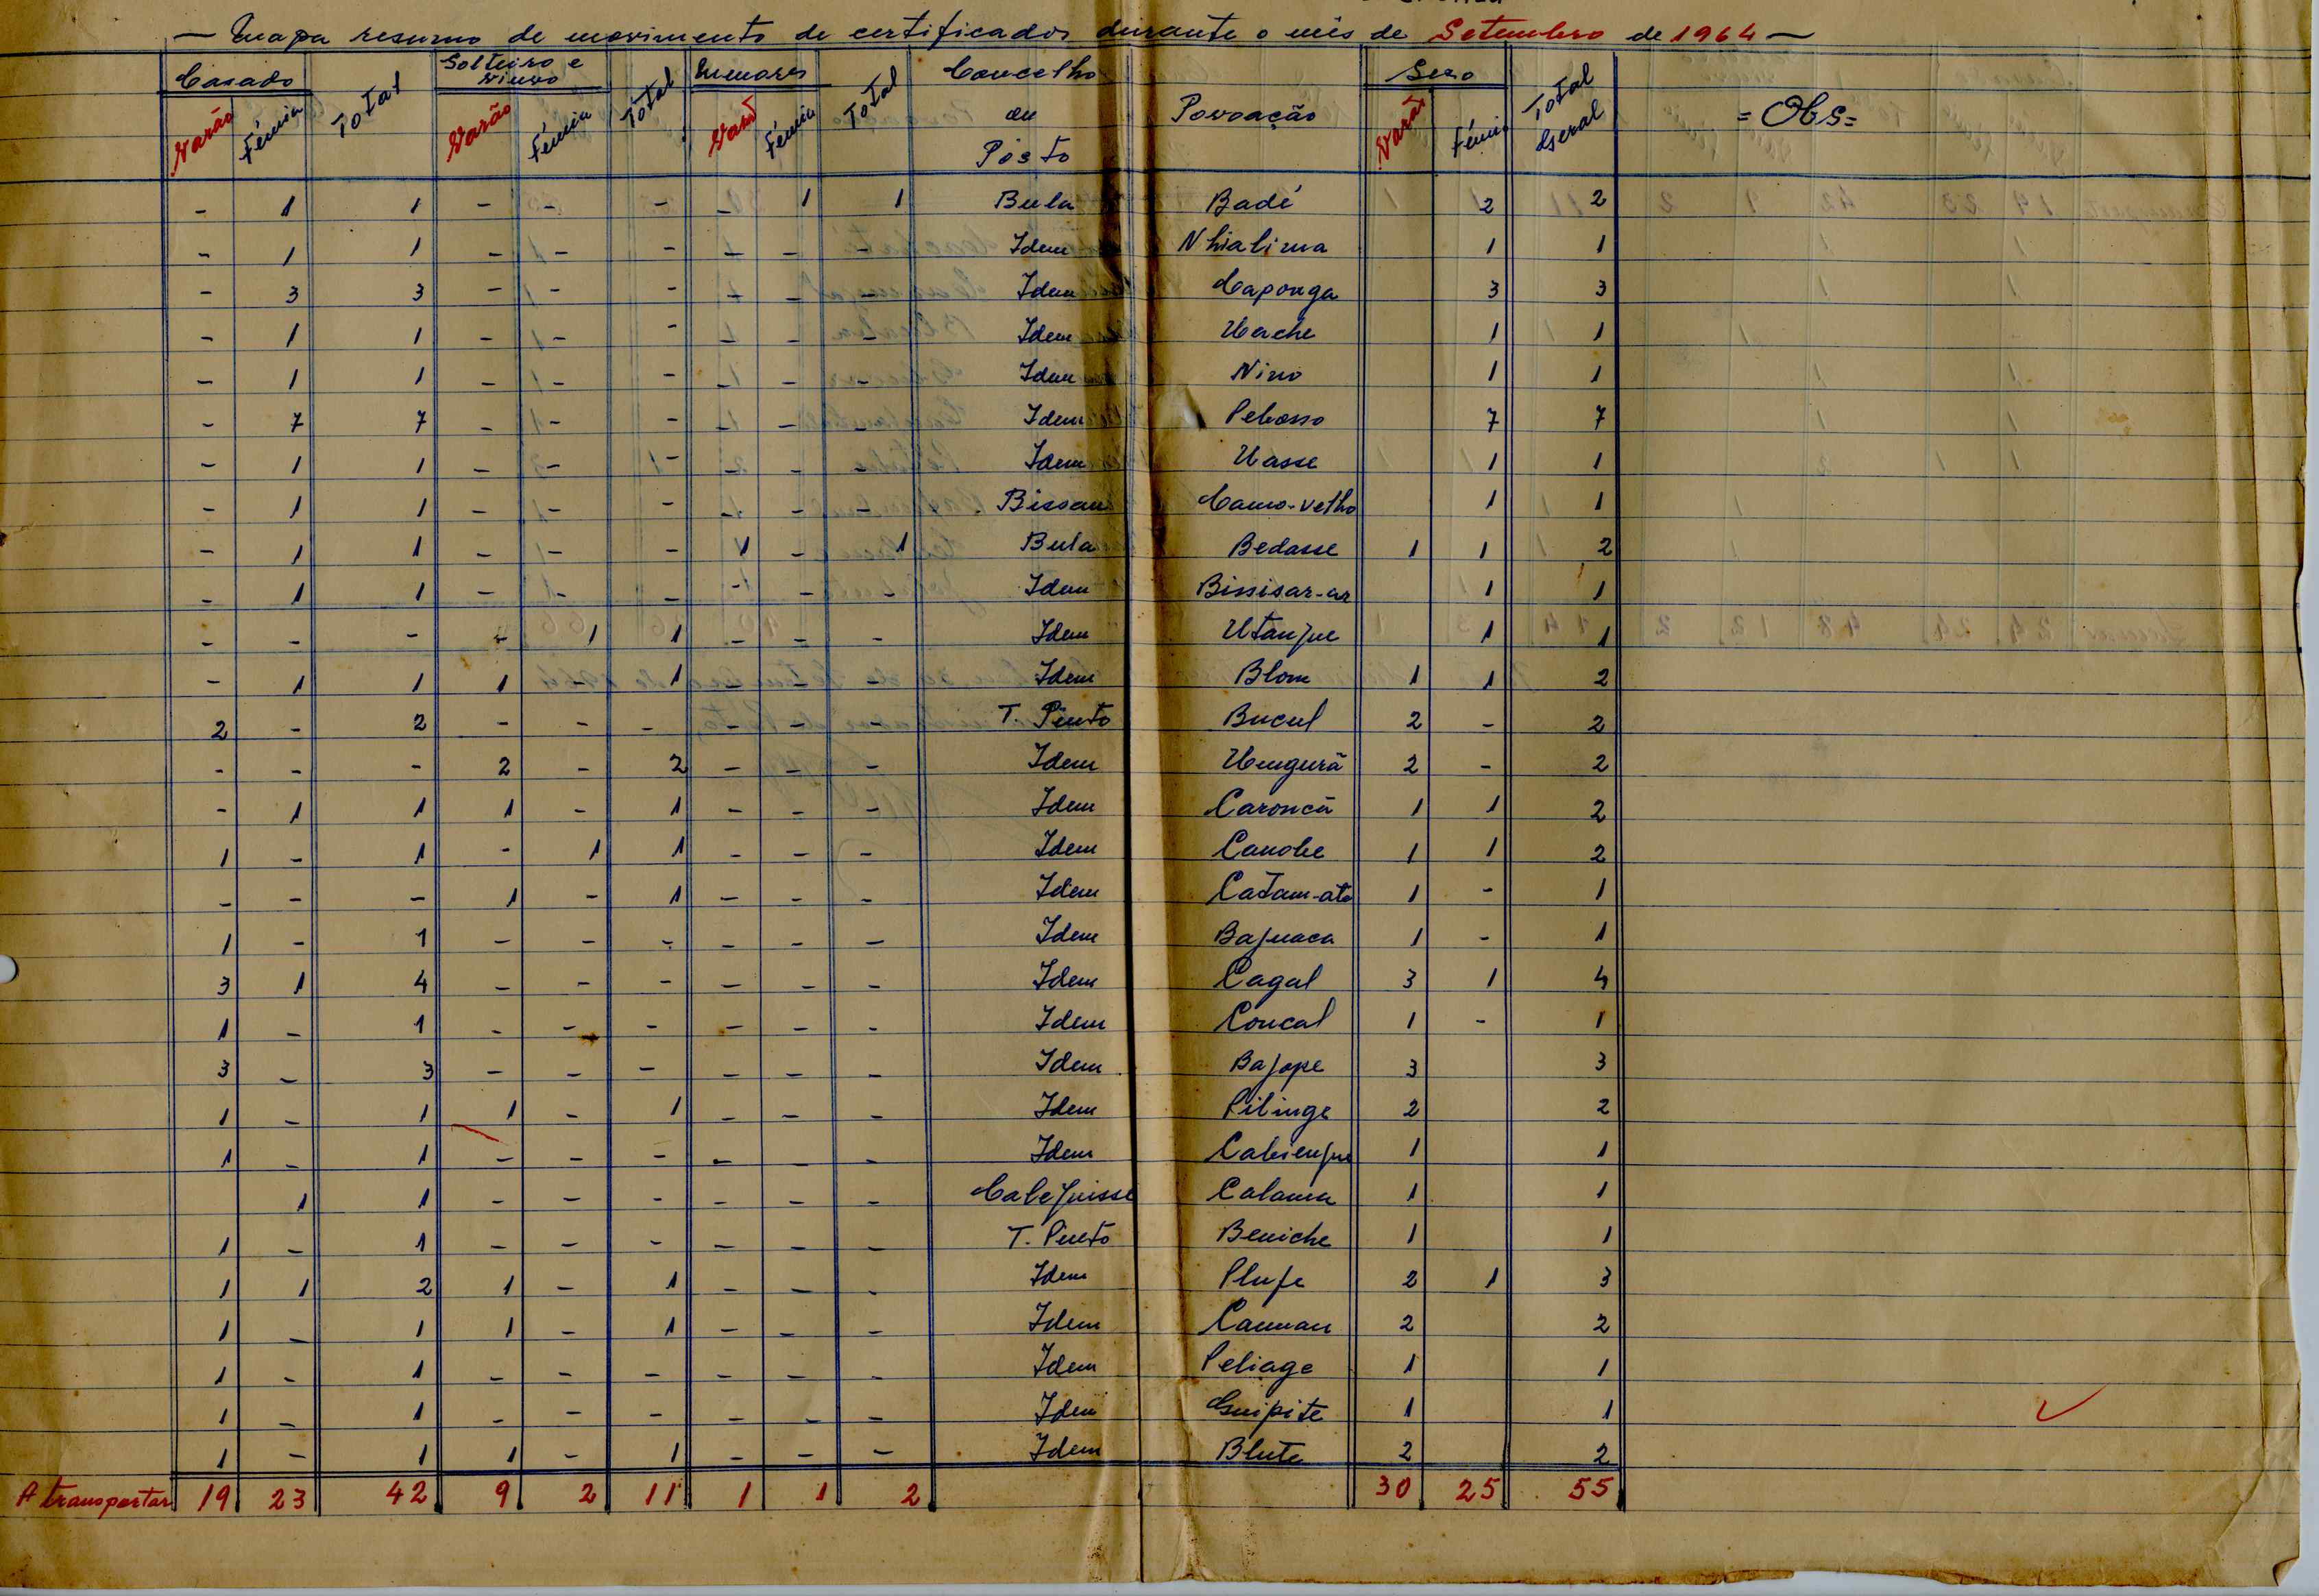 — Mapa resumo de movimento de certificados durante o mês de Setembro de 1964 —
Casado Total Solteiro e viuvo Total Menores Total Concelho ou Pôsto Povoação Sexo Total Geral = Obs =
Varão Fémia Varão Fémia Varão Fémia Varão Fémi
- 1 1 - - - - 1 1 Bula Badé 2 2
- 1 1 - - - - - Idem Nhialima 1 1
- 3 3 - - - - - - Idem Caponga 3 3
- 1 1 - - - - - - Idem Uache 1 1
- 1 1 - - - - - - Idem Nino 1 1
- 7 7 - - - - - - Idem Pebosso 7 7
- 1 1 - - - - - - Idem Uasse 1 1
- 1 1 - - - - - - Bissau Camo-velho 1 1
- 1 1 - - - 1 - 1 Bula Bedasse 1 1 2
- 1 1 - - - - - - Idem Bissisar-ar 1 1
- - - - 1 1 - - - Idem Utanjue 1 1
- 1 1 1 - 1 - - - Idem Blom 1 1 2
2 - 2 - - - - - - T. Pinto Bucul 2 - 2
- - - 2 - 2 - - - Idem Uengurã 2 - 2
- 1 1 1 - 1 - - - Idem Caroncã 1 1 2
1 - 1 - 1 1 - - - Idem Canobe 1 1 2
- - - 1 - 1 - - - Idem Catam-ate 1 - 1
1 - 1 - - - - - - Idem Bajuaca 1 - 1
3 1 4 - - - - - - Idem Cagal 3 1 4
1 - 1 - - - - - - Idem Concal 1 - 1
3 - 3 - - - - - - Idem Bajope 3 3
1 - 1 1 - 1 - - - Idem Pilinge 2 2
1 - 1 - - - - - - Idem Cabienjue 1 1
1 1 - - - - - - Calejuisse Calama 1 1
1 - 1 - - - - - - T. Pinto Beniche 1 1
1 1 2 1 - 1 - - - Idem Plufe 2 1 3
1 - 1 1 - 1 - - - Idem Canuan 2 2
1 - 1 - - - - - - Idem Peliage 1 1
1 - 1 - - - - - - Idem Guipite 1 1
1 - 1 1 - 1 - - - Idem Blute 2 2
A transportar 19 23 42 9 2 11 1 1 2 30 25 55